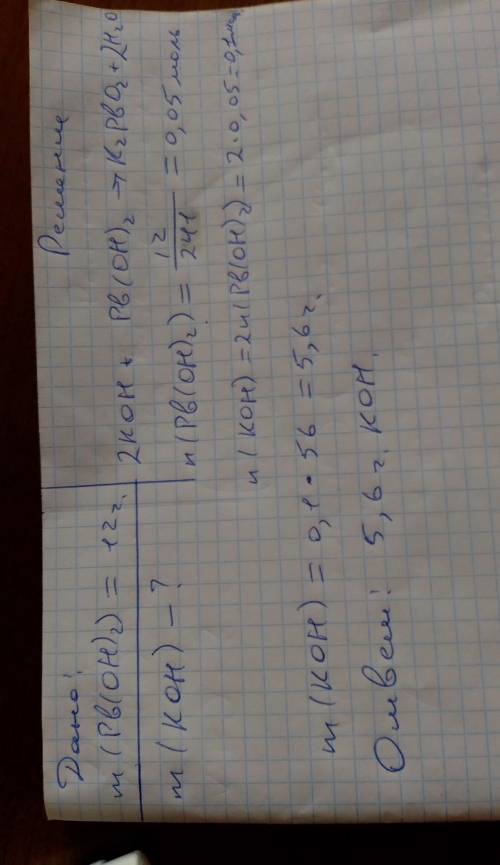 Дано:
m(Pb(OH)₂) = 12 г.
m(KOH) - ?
Решение
2KOH + Pb(OH)₂ → K₂PbO₂ + 2H₂O
n(Pb(OH)₂) = 12/241 = 0,05 моль
n(KOH) = 2n(Pb(OH)₂) = 2·0,05 = 0,1 моль
m(KOH) = 0,1 · 56 = 5,6 г.
Ответ: 5,6 г. KOH.